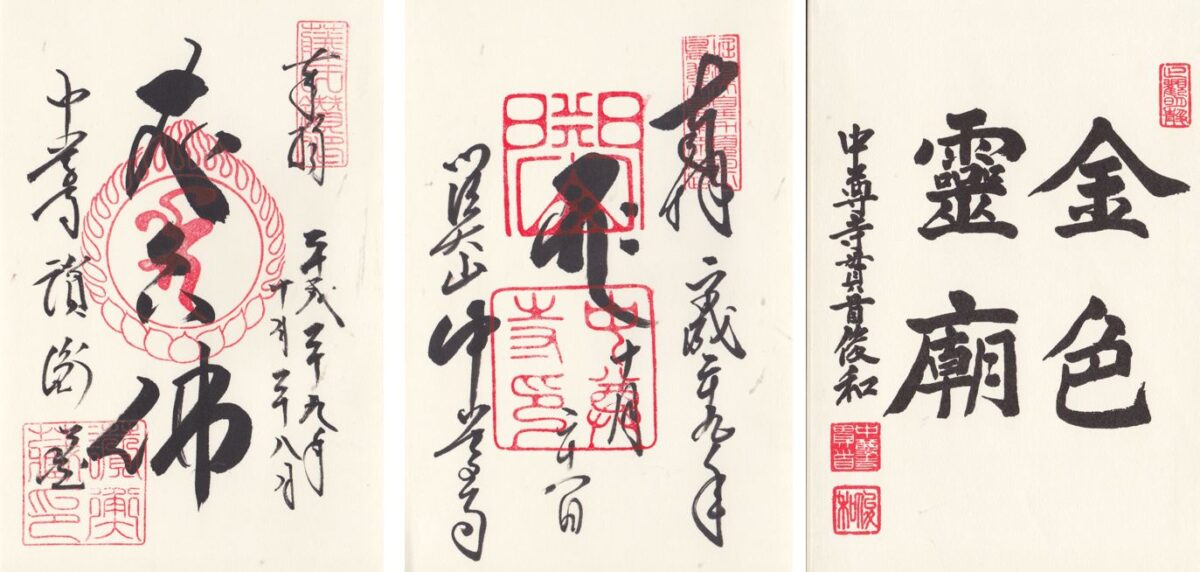 奉拝
平成二十九年
十月二十八日
丈六佛
中尊寺 讃衡蔵
讃衡蔵印
奉拝
平成二十九年
十月二十八日
中尊寺印
中尊寺
金色
靈廟
中尊寺貫首俊和
中尊寺貫首
俊和